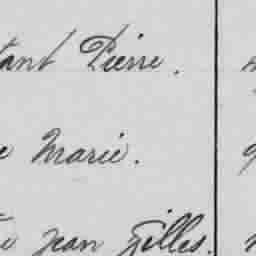 tant Pierre.
e Marie.
te Jean Gilles.